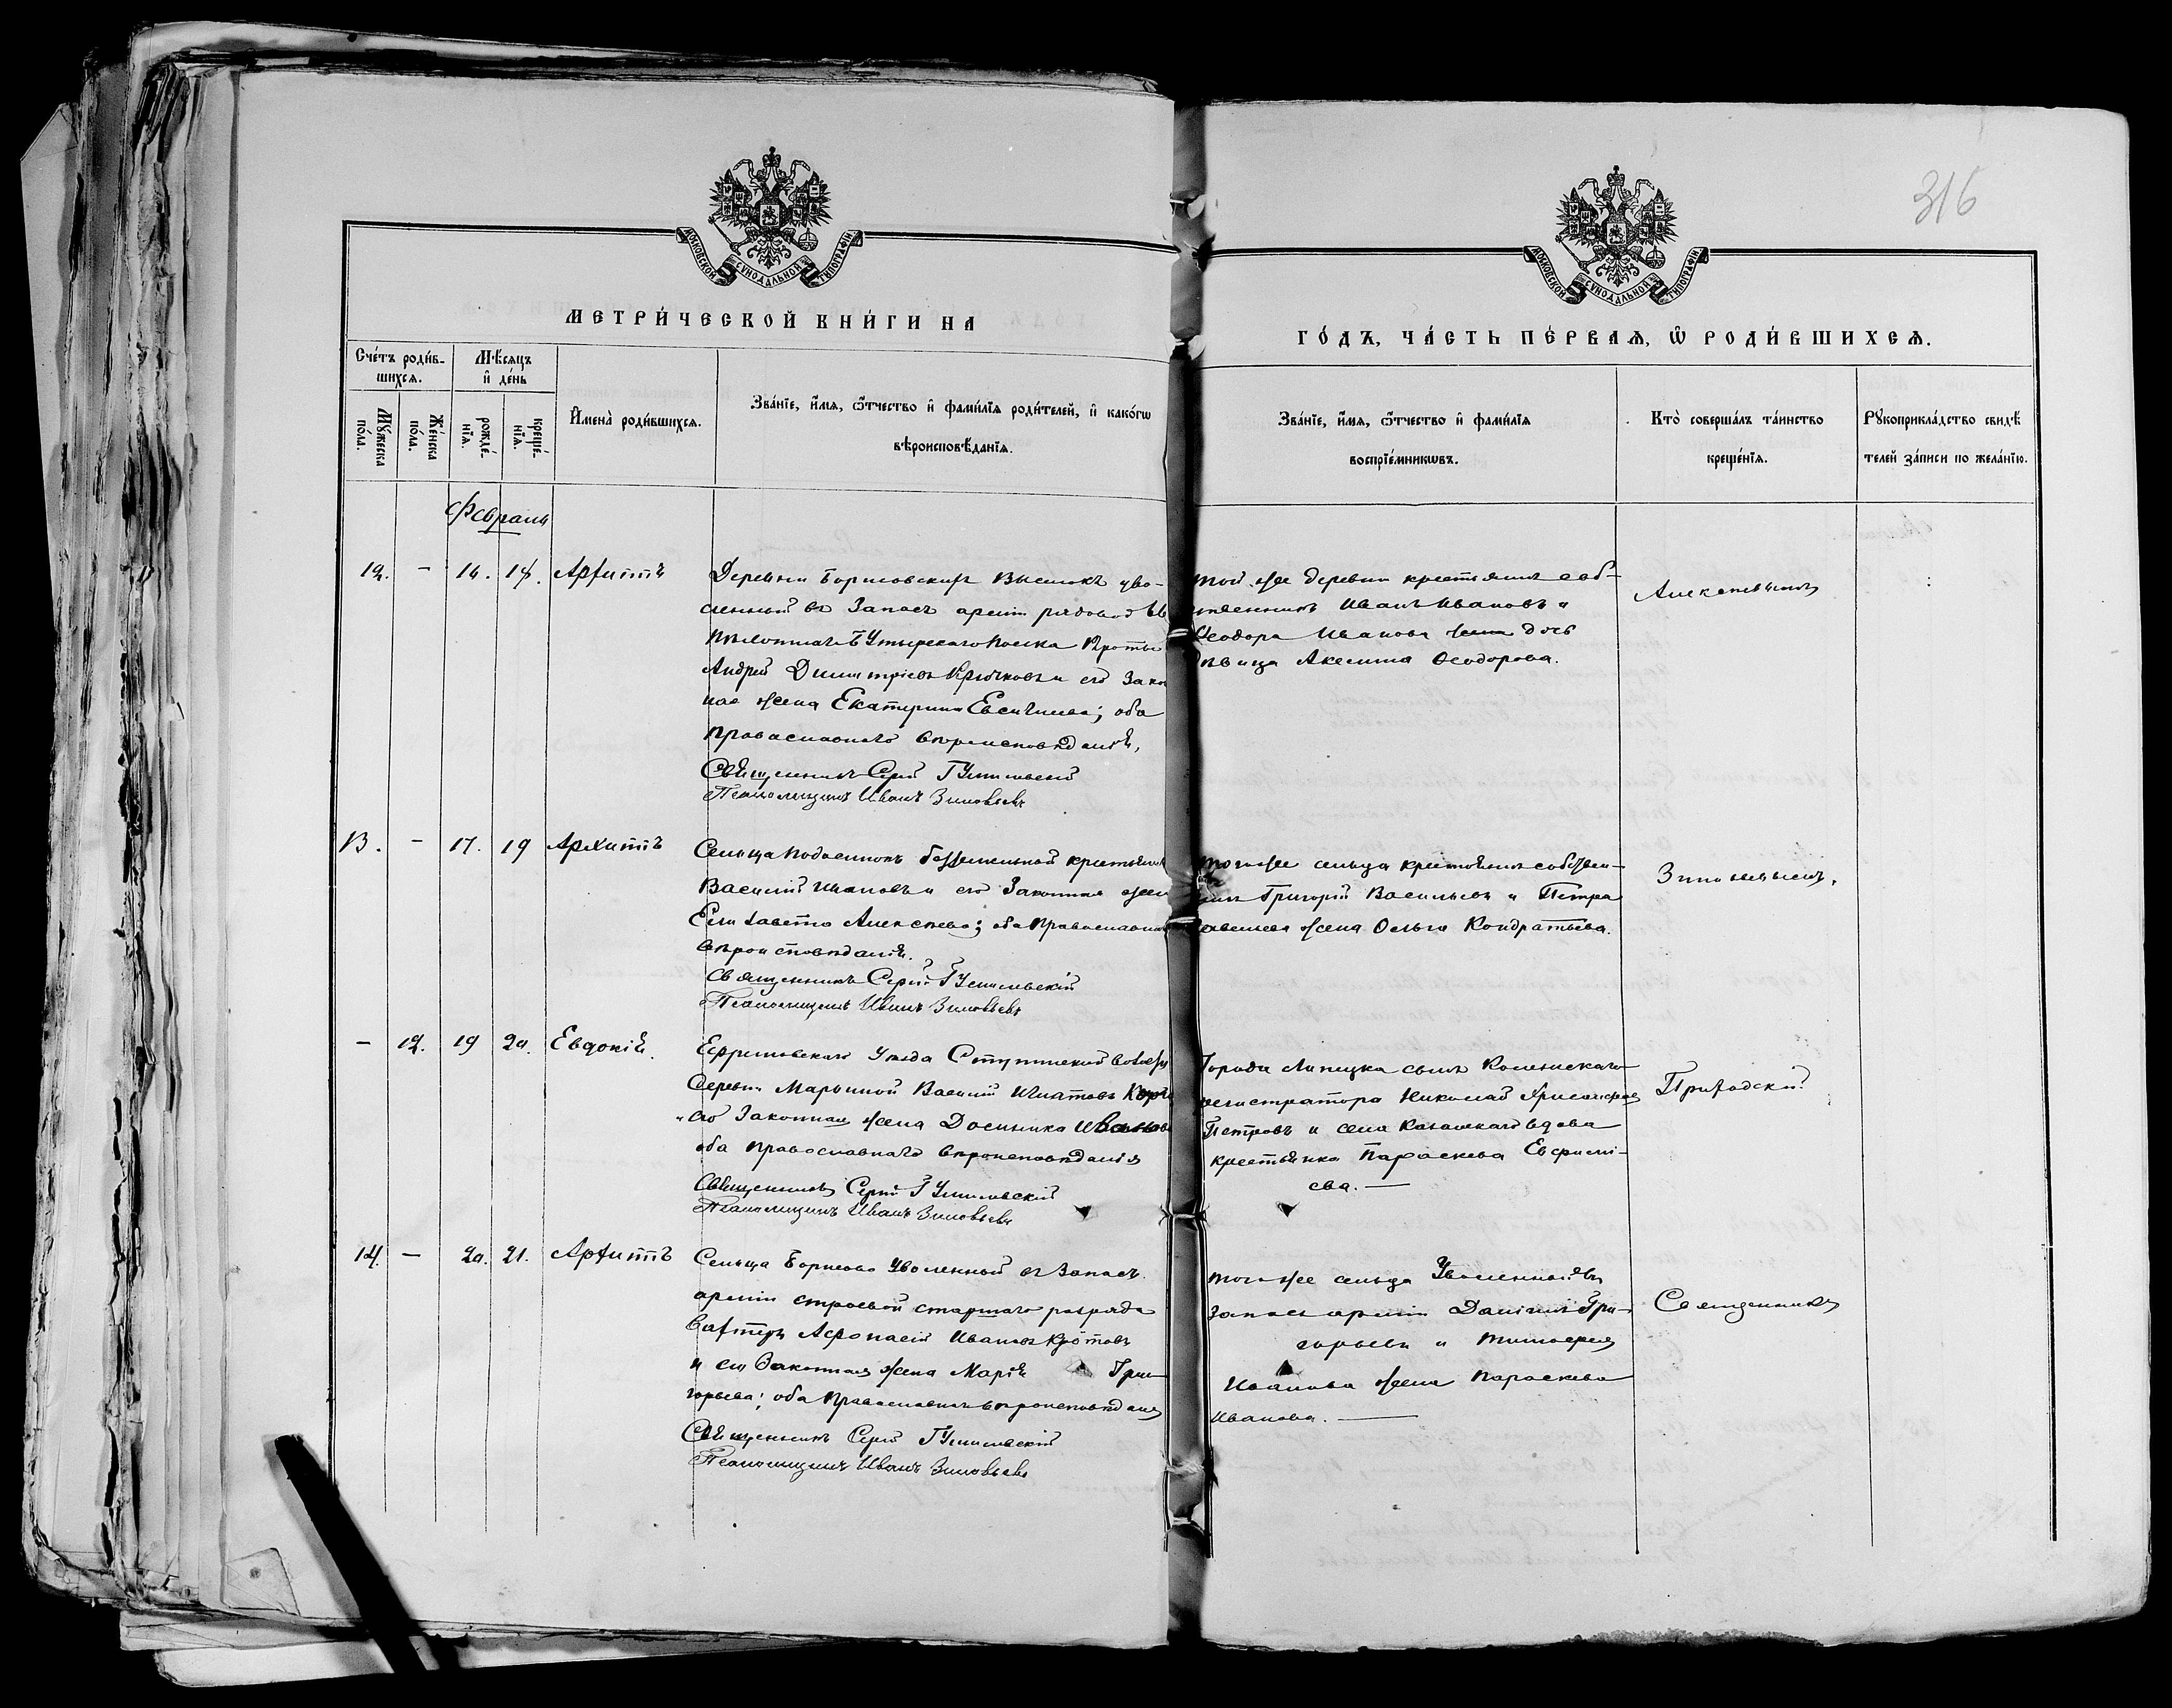 316
МОСКОВСКОЙ СѴНОДАЛЬНОЙ ТИПОГРАФІИ
МОСКОВСКОЙ СѴНОДАЛЬНОЙ ТИПОГРАФІИ
МЕТРИ́ЧЕСКОЙ КНИ́ГИ НА
ГО́ДЪ, ЧА́СТЬ ПЕ́РВАѦ, Ѡ҆ РОДИ́ВШИХСѦ.
Сче́тъ роди́в-
шихсѧ.
Мѣ́сяцъ
и҆ де́нь
Мꙋ́жеска
по́ла.
Же́нска
по́ла.
рожде́-
нїѧ.
креще́-
нїѧ.
И҆мена̀ роди́вшихсѧ.
Зва́нїе, и҆́мѧ, ѻ҆́тчество и҆ фами́лїѧ роди́телей, и҆ како́гѡ
вѣроисповѣ́данїѧ.
Зва́нїе, и҆́мѧ, ѻ҆́тчество и҆ фами́лїѧ
воспрїе́мникѡвъ.
Кто̀ соверша́лъ та́инство
креще́нїѧ.
Рꙋкоприкла́дство свидѣ́
телей за́писи по жела́нїю.
Февраль
12. – 16. 18. Архиппъ
Деревни Борисовскихъ Выселокъ уво-
ленный въ Запасъ арміи рядовой
Андрей Димитріевъ Крючковъ и его Зако
ная жена Екатерина Евсигнеева; оба
православнаго вѣроисповѣданія,
Священникъ Сергій
Псаломщикъ Иванъ Зиновьевъ
той же деревни крестьянинъ соб-
ственникъ Иванъ Ивановъ и
Ѳеодора Иванова дочь
дѣвица Акелина Ѳеодорова.
13. – 17. 19 Архиппъ
Сельца безземельный крестьянинъ
Василій Ивановъ и его Законная жена
Елисавета Алексѣева; оба православнаго
вѣроисповѣданія.
Священникъ Сергій
Псаломщикъ Иванъ Зиновьевъ
того же сельца крестьянинъ собствен-
никъ Григорій Васильевъ и Петра
Савельева жена Ольга Кондратьева.
– 12. 19 20. Евдокія.
Ефремовскаго Уѣзда Ступинской волости
деревни Марьиной Василій Игнатовъ
и его Законная жена Домника Иванова
оба православнаго вѣроисповѣданія
Священникъ Сергій
Псаломщикъ Иванъ Зиновьевъ
Города Липецка сынъ Коллежскаго
регистратора Николай
Петровъ и села вдова
крестьянка Параскева Ефремі-
ева. —
14. – 20. 21. Архиппъ
Сельца Борисова Уволенный въ Запасъ
арміи строевой старшаго разряда
вахтеръ Аѳонасій Ивановъ Кротовъ
и его Законная жена Марія Гри-
горьева; оба Православнаго вѣроисповѣданія
Священникъ Сергій
Псаломщикъ Иванъ Зиновьевъ
того же сельца Уволенный въ
запасъ арміи Даніилъ Гри-
горьевъ и Тимоѳея
Иванова жена Параскева
Иванова. —
Священникъ